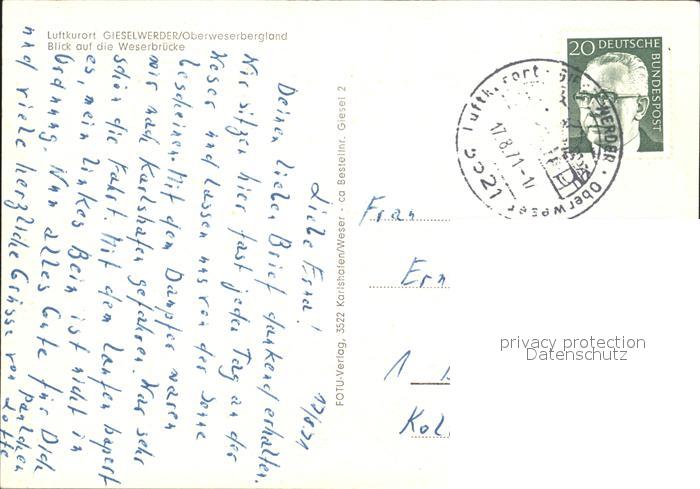 Luftkurort GIESELWERDER/Oberweserbergland
Blick auf die Weserbrücke
17/8.71
Liebe Erna!
Deinen lieben Brief dankend erhalten.
Wir sitzen hier fast jeden Tag an der
Weser und lassen uns von der Sonne
bescheinen. Mit dem Dampfer waren
wir nach Karlshafen gefahren. War sehr
schön die Fahrt. Mit dem Laufen hapert
es, mein linkes Bein ist nicht in
Ordnung. Nun alles Gute für Dich
und viele herzliche Grüsse von
Lotte
FOTU-Verlag, 3522 Karlshafen/Weser - ca Bestellnr. Giesel 2
20 DEUTSCHE
BUNDESPOST
Luftkurort
17.8.71-17
3521
Oberweser
Frau
Ern
1
Kol
privacy protection
Datenschutz